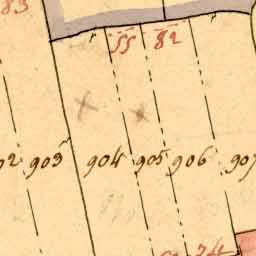 83
55 82
903 904 905 906 907
74